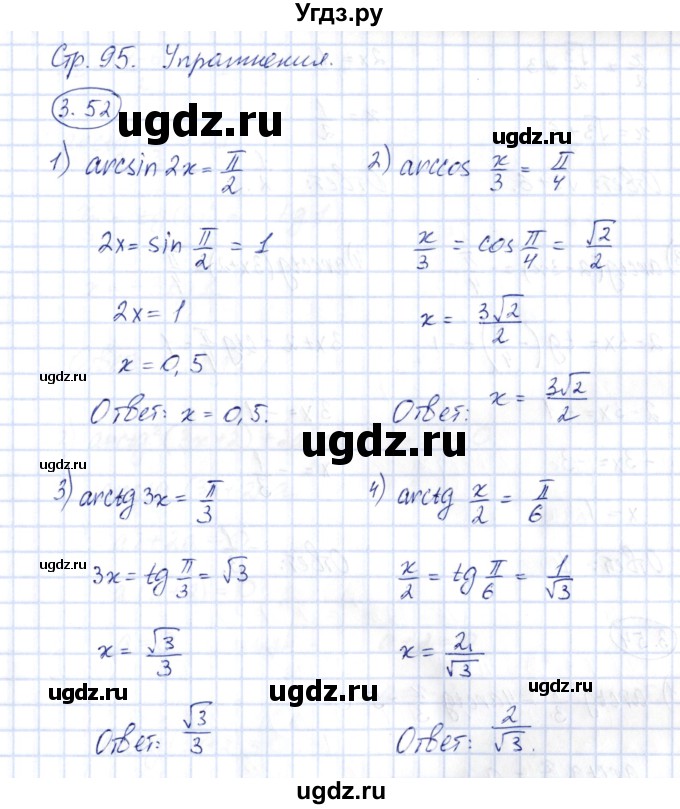 Угдз.ру
Стр. 95. Упражнения.
3.52
ugdz.ru
ugdz.ru
1) arcsin 2x = π/2
2) arccos x/3 = π/4
2x = sin π/2 = 1
x/3 = cos π/4 = √2/2
2x = 1
x = 3√2/2
x = 0,5
ugdz.ru
ugdz.ru
Ответ: x = 0,5.
Ответ: x = 3√2/2
ugdz.ru
ugdz.ru
3) arctg 3x = π/3
4) arctg x/2 = π/6
ugdz.ru
ugdz.ru
3x = tg π/3 = √3
x/2 = tg π/6 = 1/√3
x = √3/3
x = 2/√3
ugdz.ru
ugdz.ru
ugdz.ru
Ответ: √3/3
Ответ: 2/√3.
ugdz.ru
ugdz.ru